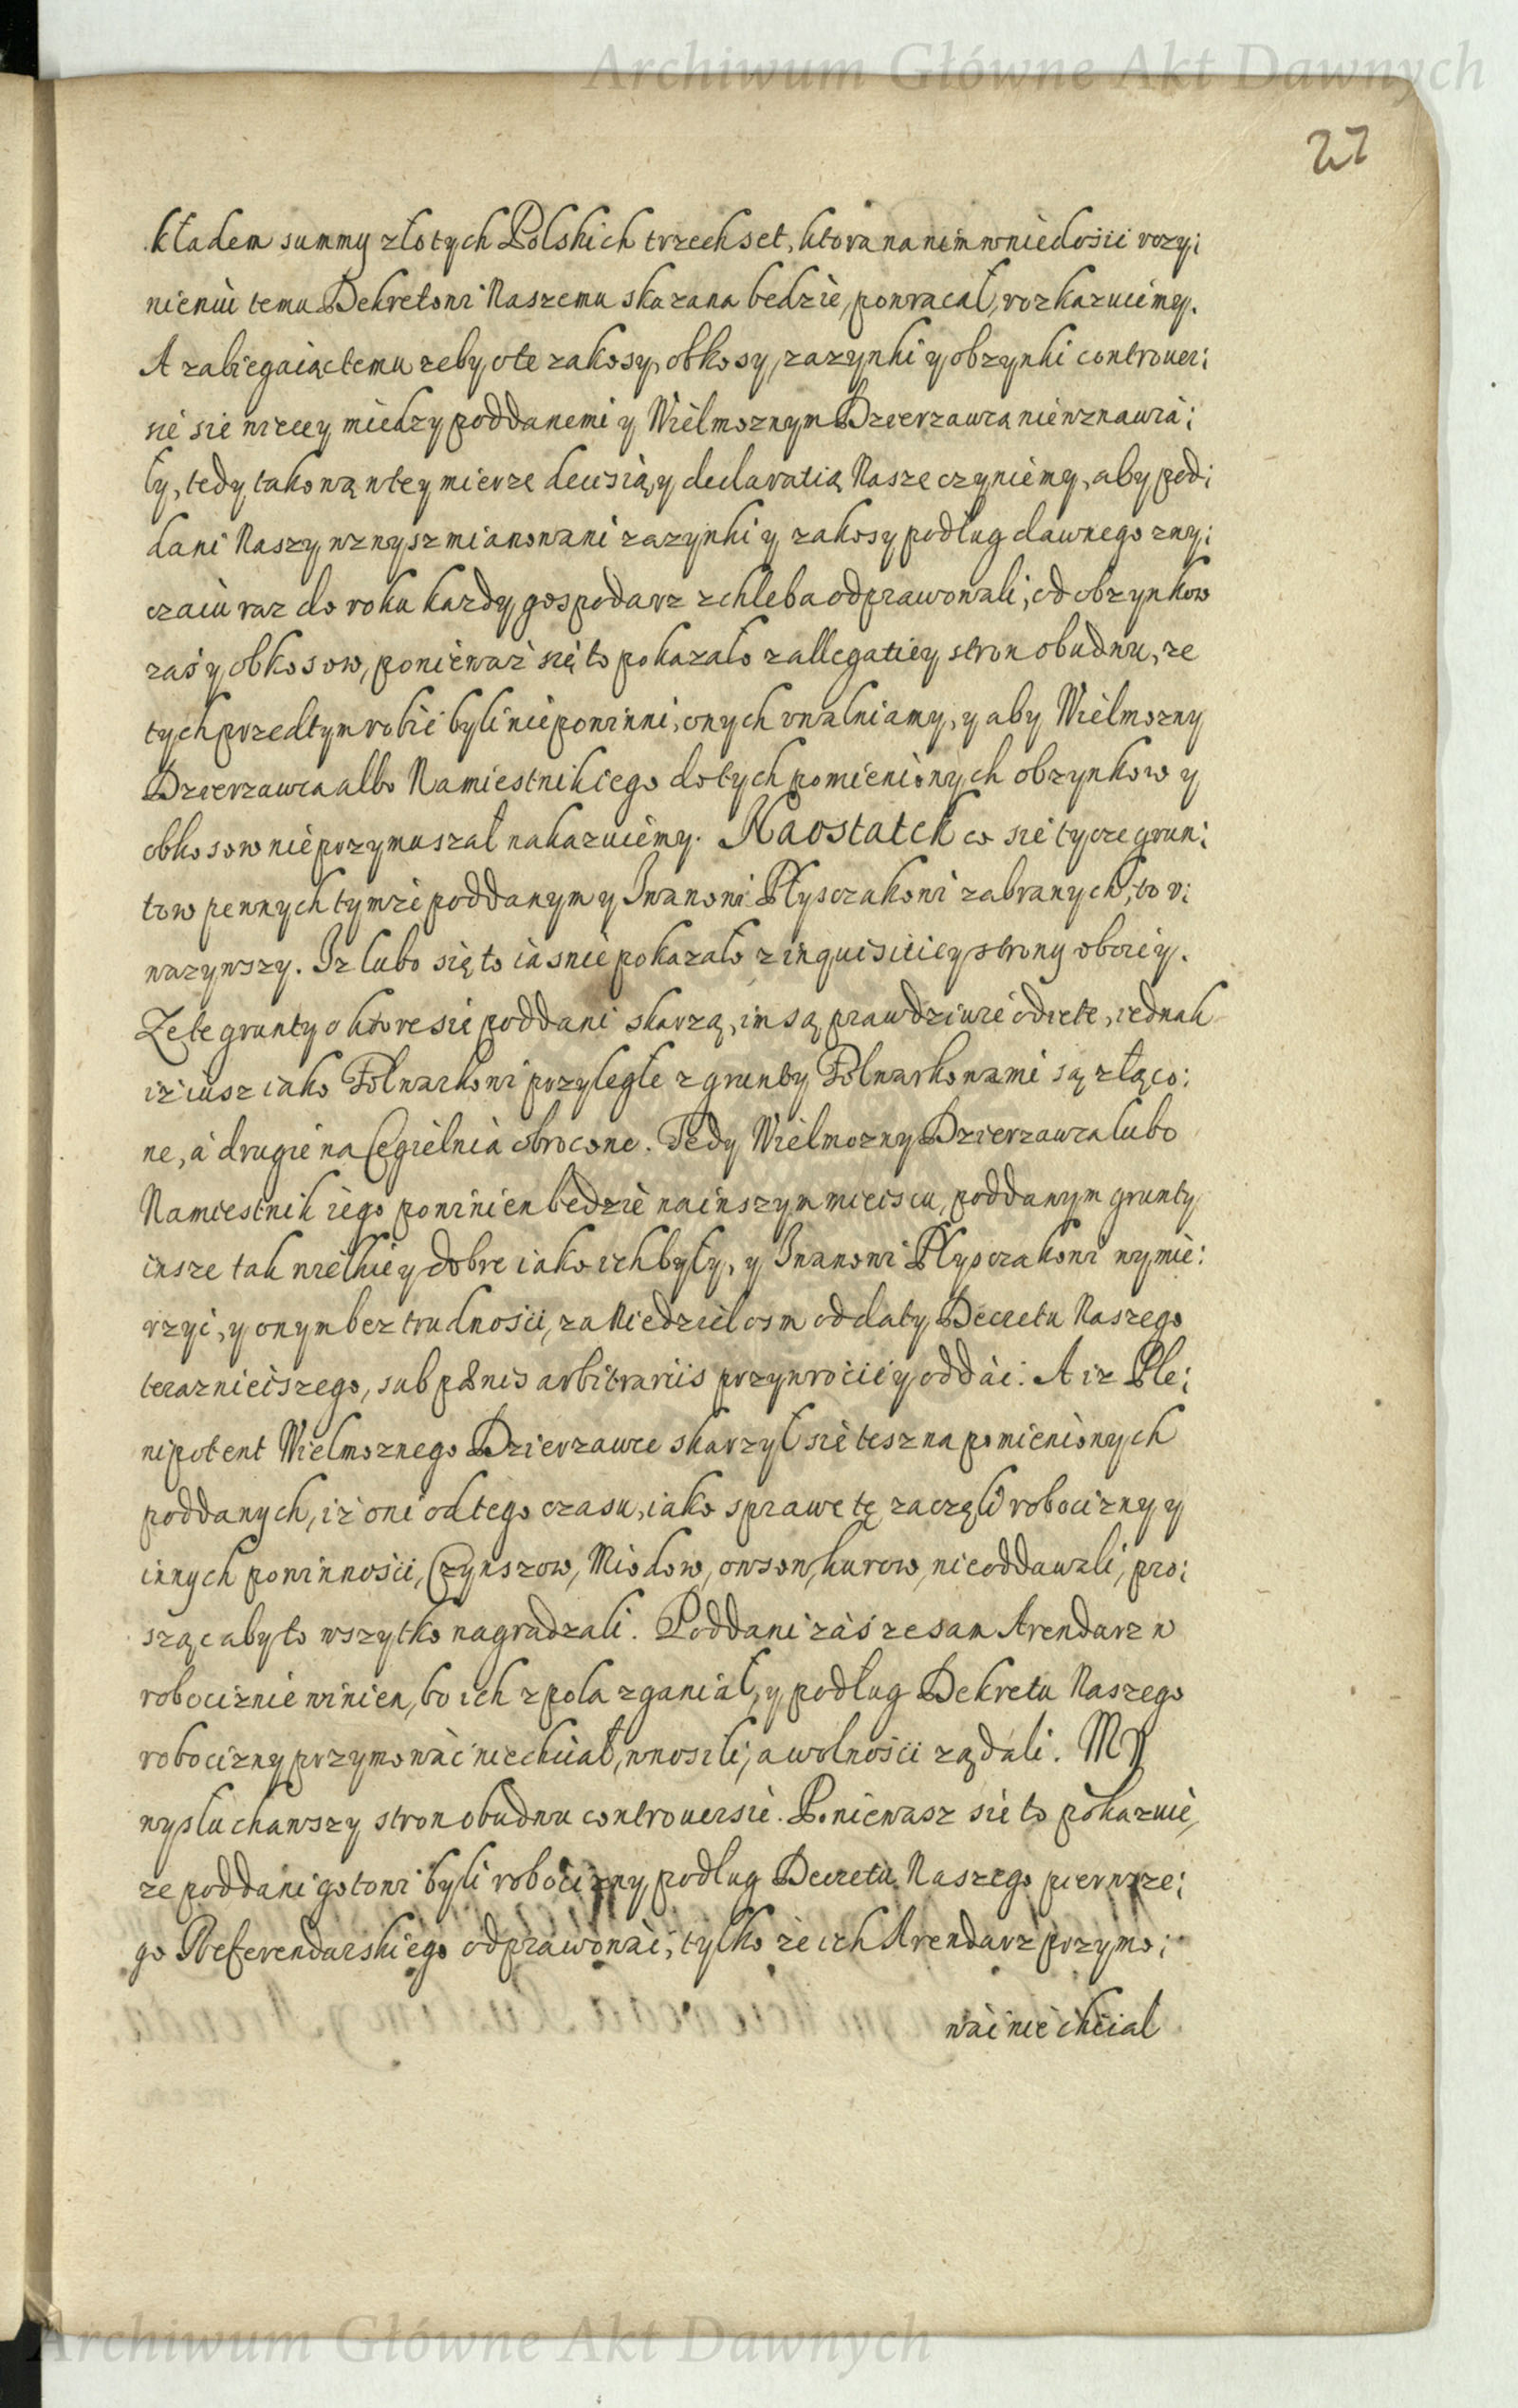 Archiwum Główne Akt Dawnych
27
kładem summy złotych Polskich trzechset, ktora na nim w niedosić vczy:
nieniu temu Dekretowi Naszemu skazana bedzie, powracał, rozkazuiemy.
A zabiegaiąc temu zeby o te zakosy, obkosy, zazynki y obzynki controuer:
sie sie wiecey miedzy poddanemi y Wielmoznym Dzierzawcą nie wznawia:
ły, tedy takową w tey mierze decisią, y declaratią Nasze czyniemy, aby pod:
dani Naszy wzwysz mianowani zazynki y zakosy podług dawnego zwy:
czaiu raz do roku kazdy gospodarz z chleba odprawowali, od obzynkow
zaś y obkosow, poniewaz się to pokazało z allegatiey stron obudwu, ze
tych przedtym robić byli nie powinni, onych vwalniamy, y aby Wielmozny
Dzierzawca albo Namiestnik iego do tych pomienionych obzynkow y
obkosow nie przymuszał nakazuiemy. Naostatek co sie tycze grun:
tow pewnych tymze poddanym y Iwanowi Płysczakowi zabranych, to v:
wazywszy. Iz lubo się to iasnie pokazało z inquisitiey strony oboiey.
Ze te grunty o ktore sie poddani skarzą, im są prawdziwie odiete, iednak
iz iusz iako Folwarkowi przyległe z grunty Folwarkowami są złączo:
ne, a drugie na Cegielnia obrocone. Tedy Wielmozny Dzierzawca lubo
Namiestnik iego powinien bedzie na inszym mieiscu, poddanym grunty
insze tak wielkie y dobre iako ich były, y Iwanowi Płysczakowi wymie:
rzyć, y onym bez trudnosci, za Niedziel osm od daty Decretu Naszego
teraznieiszego, sub pænis arbitrariis przywrocić y oddać. A iz Ple:
nipotent Wielmoznego Dzierzawce skarzył sie tesz na pomienionych
poddanych, iz oni od tego czasu, iako sprawe tę zaczęli robocizny y
innych powinnosci, Czynszow, Miodow, owsow, kurow, nie oddawali, pro:
sząc aby to wszytko nagradzali. Poddani zaś ze sam Arendarz w
robociznie winien, bo ich z pola zganiał, y podług Dekretu Naszego
robocizny przymować nie chciał, wnosili, a wolnosci ządali. MY
wysłuchawszy stron obudwu controuersie. Poniewasz sie to pokazuie,
ze poddani gotowi byli robocizny podług Decretu Naszego pierwsze:
go Referendarskiego odprawować, tylko ze ich Arendarz przymo:
wać nie chciał
Archiwum Główne Akt Dawnych